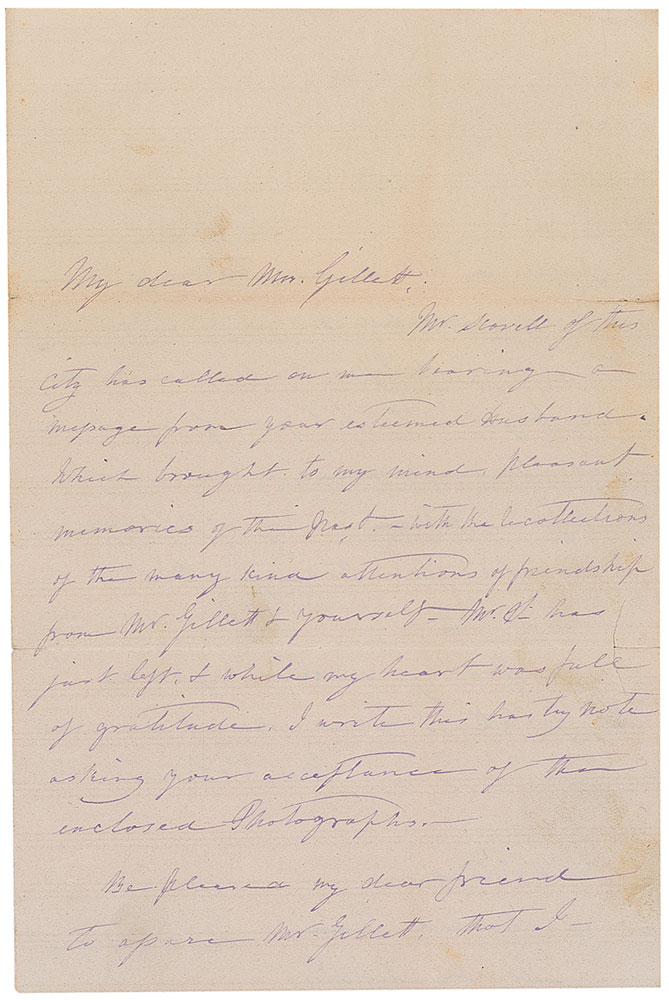 My dear Mrs. Gillett.
Mr. Scovell of this
city has called on me bearing a
message from your esteemed Husband.
Which brought to my mind, pleasant
memories of the Past. - With the recollections
of the many kind attentions of friendship
from Mr. Gillett & yourself - Mr. S- has
just left, & while my heart was full
of gratitude, I write this hasty note
asking your acceptance of the
enclosed Photographs. -
Be pleased my dear friend
to assure Mr. Gillett, that I -